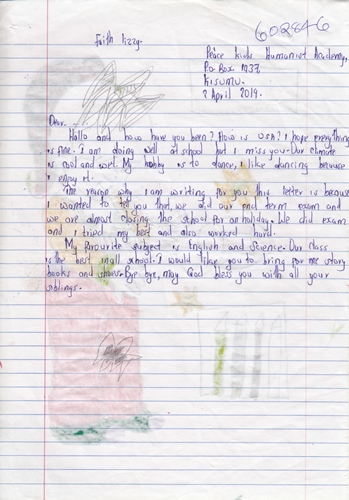 602846
Faith lizzy.
Peace Kids Humanist Academy,
P.o Box 1737
Kisumu.
2 April 2019.
Dear
Hallo and how have you been? How is USA? I hope everything
is fine. I am doing well at school but I miss you. Our climate
is cool and wet. My hobby is to dance, I like dancing because
I enjoy it.
The reason why I am writing for you this letter is because
I wanted to tell you that, we did our end term exam and
we are almost closing the school for an holiday. We did exam
and I tried my best and also worked hard.
My favourite subject is English and Science. Our class
is the best in all school. I would like you to bring for me story
books and shoes. Bye bye, may God bless you with all your
siblings.